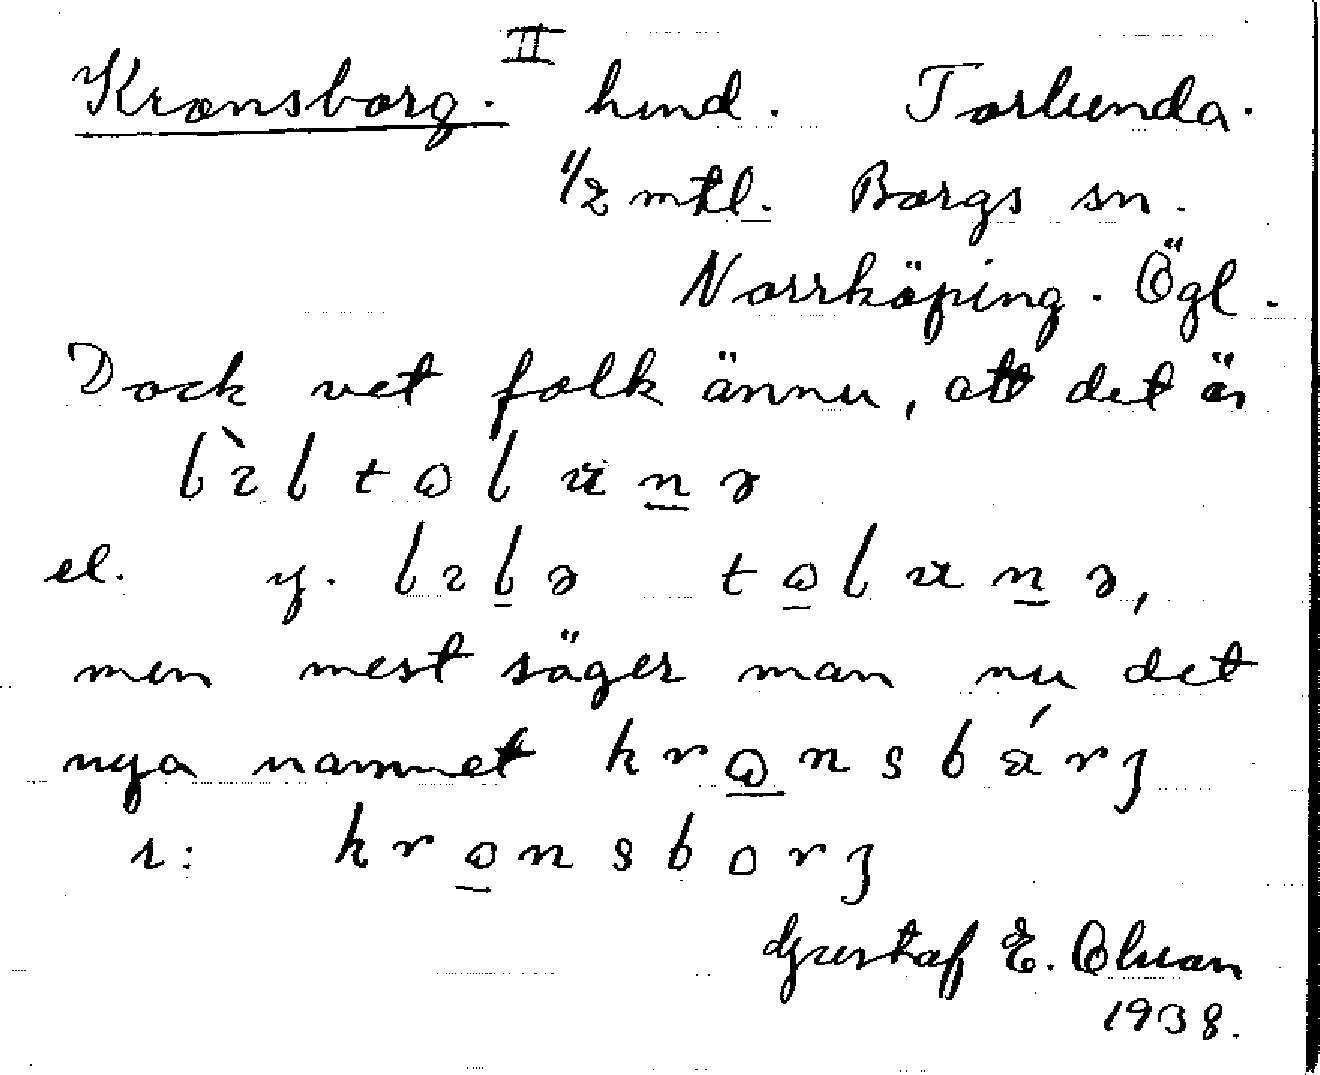 II
Kronsborg. hmd. Torlunda.
1/2 mtl. Borgs sn.
Norrköping. Ögl.
Dock vet folk ännu, att det är
el. y.
men mest säger man nu det
nya namnet krɷnsbårʒ
r: kronsborʒ
Gustaf E.
1938.